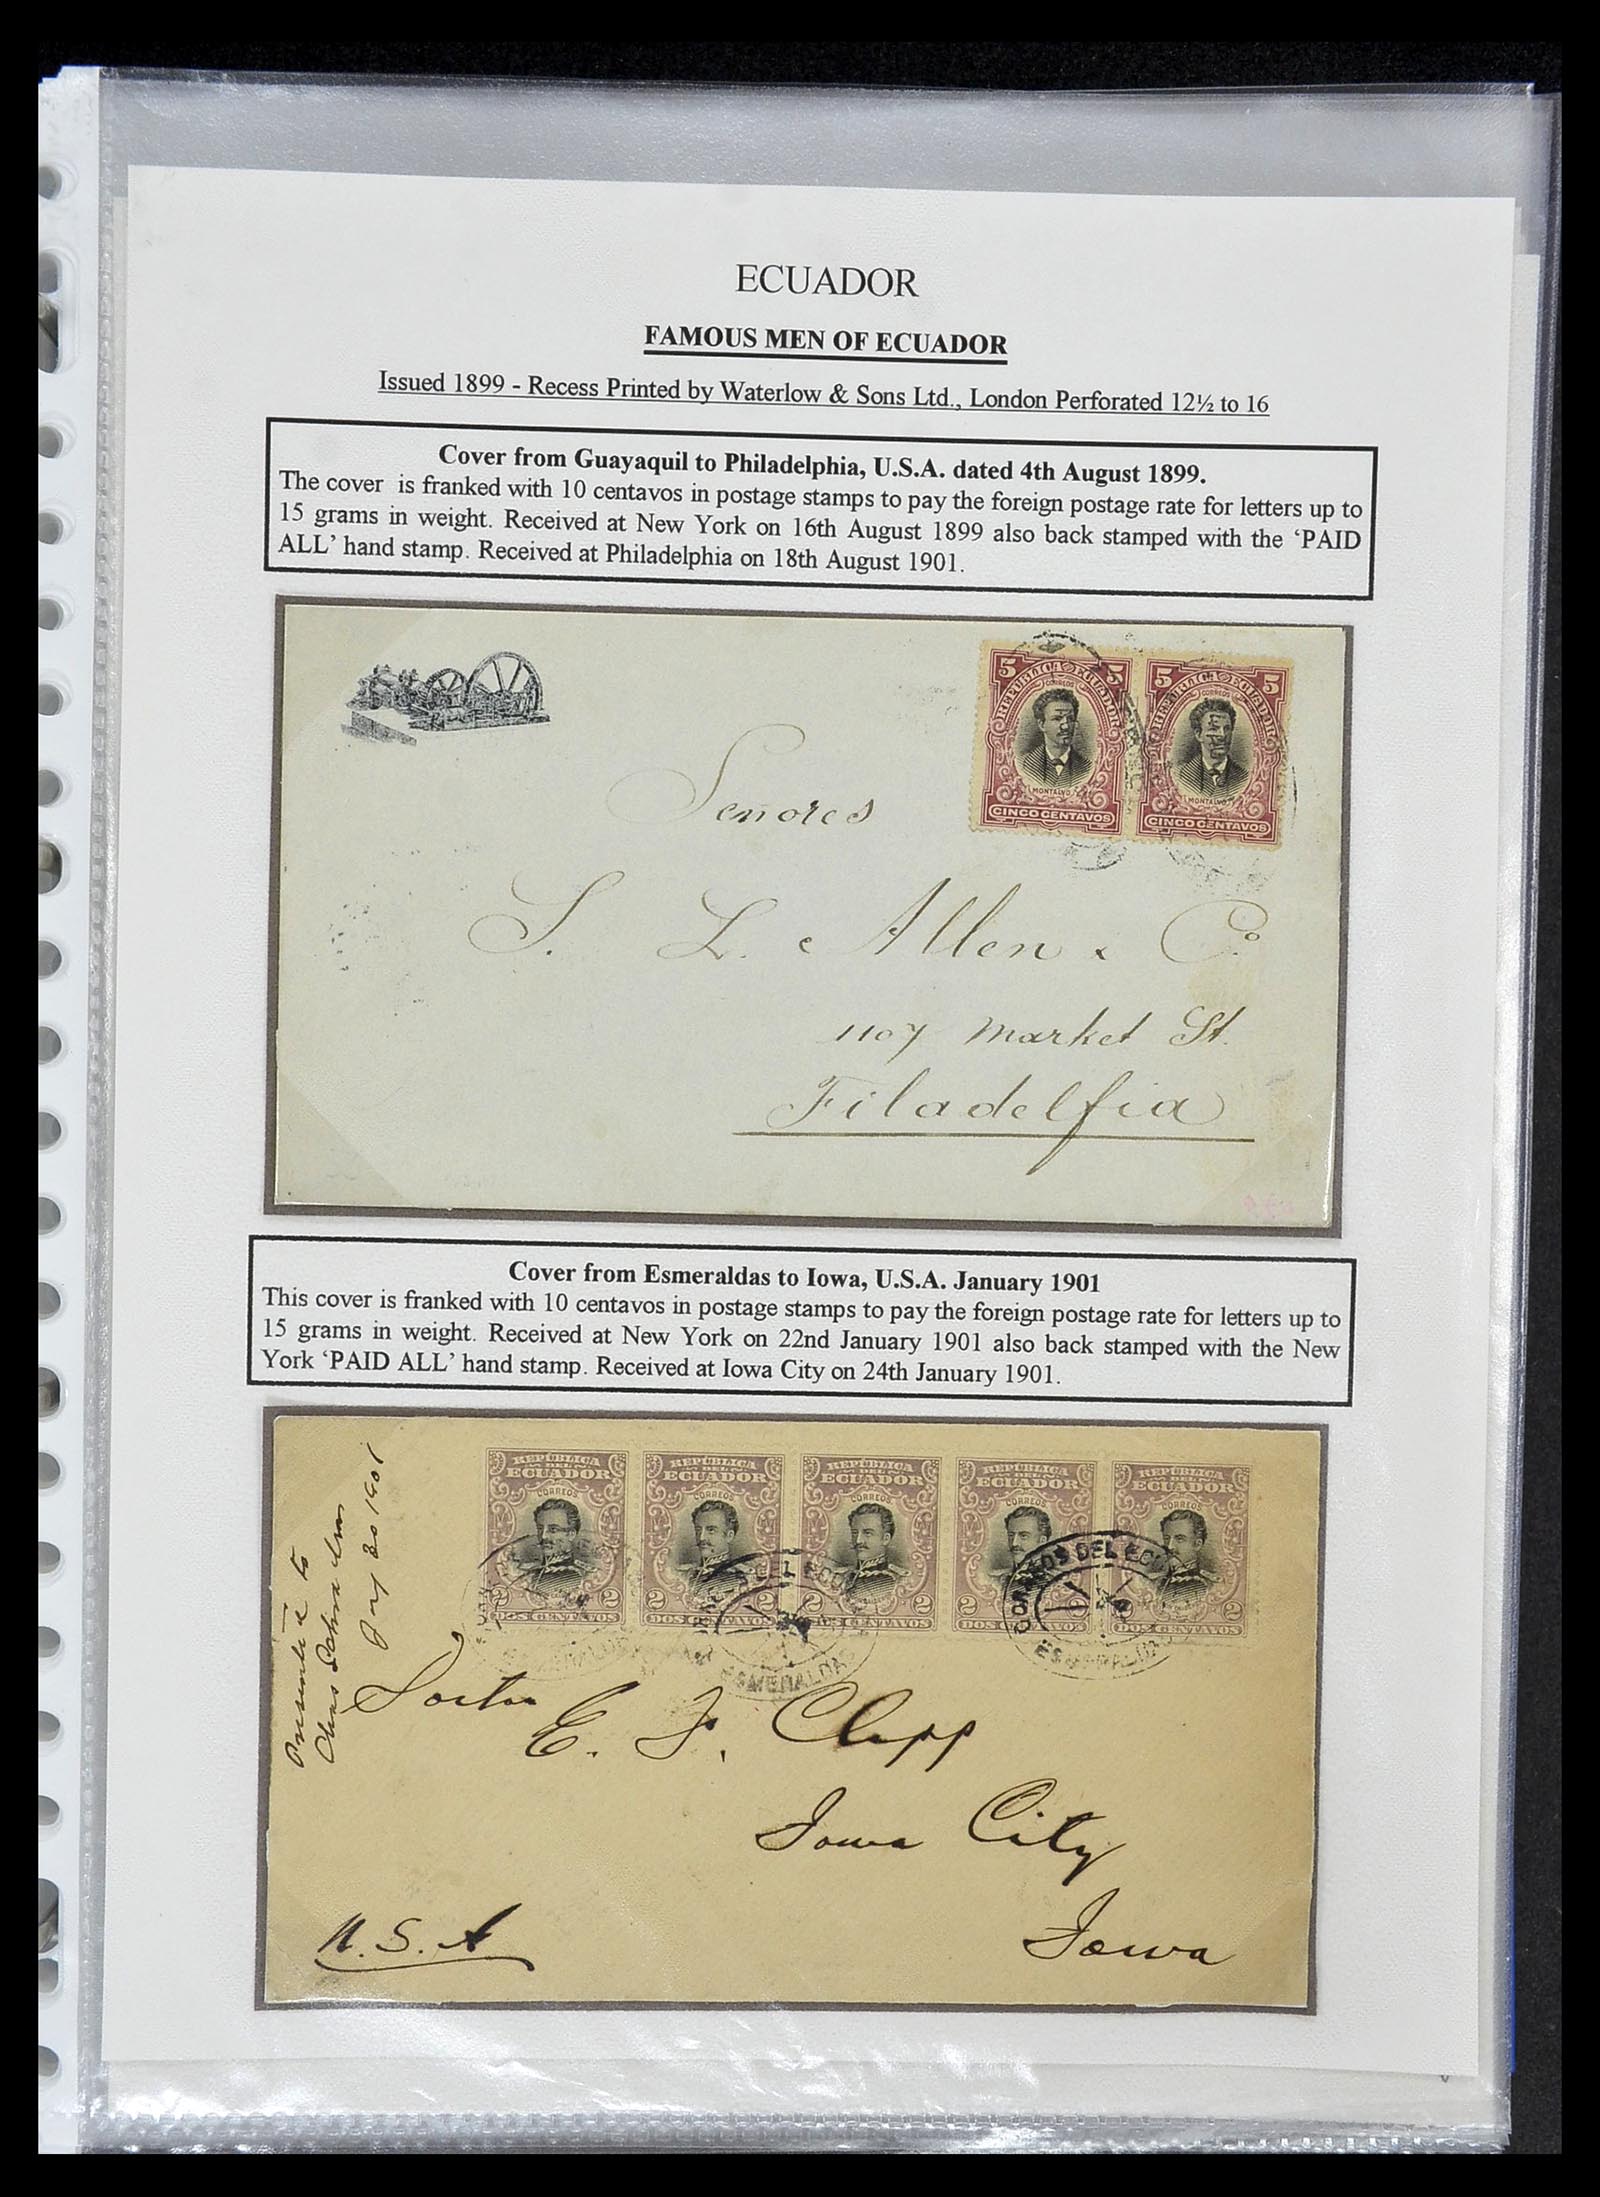 ECUADOR
FAMOUS MEN OF ECUADOR
Issued 1899 - Recess Printed by Waterlow & Sons Ltd., London Perforated 12½ to 16
Cover from Guayaquil to Philadelphia, U.S.A. dated 4th August 1899.
The cover is franked with 10 centavos in postage stamps to pay the foreign postage rate for letters up to
15 grams in weight. Received at New York on 16th August 1899 also back stamped with the ‘PAID
ALL’ hand stamp. Received at Philadelphia on 18th August 1901.
5 REPUBLICA ECUADOR 5
CORREOS
MONTALVO
CINCO CENTAVOS
5 REPUBLICA ECUADOR 5
CORREOS
MONTALVO
CINCO CENTAVOS
Señores
S. L. Allen & Co.
1107 Market St.
Filadelfia
Cover from Esmeraldas to Iowa, U.S.A. January 1901
This cover is franked with 10 centavos in postage stamps to pay the foreign postage rate for letters up to
15 grams in weight. Received at New York on 22nd January 1901 also back stamped with the New
York ‘PAID ALL’ hand stamp. Received at Iowa City on 24th January 1901.
REPÚBLICA
DEL
ECUADOR
CORREOS
2 2
DOS CENTAVOS
REPÚBLICA
DEL
ECUADOR
CORREOS
2 2
DOS CENTAVOS
REPÚBLICA
DEL
ECUADOR
CORREOS
2
CENTAVOS
REPÚBLICA
DEL
ECUADOR
CORREOS
2
DOS CENTAVOS
REPÚBLICA
DEL
ECUADOR
CORREOS
2 2
DOS CENTAVOS
CORREOS DEL ECU
ESMERALDAS
to
Chas
30 1901
E. F. Clapp
Iowa City
Iowa
U.S.A